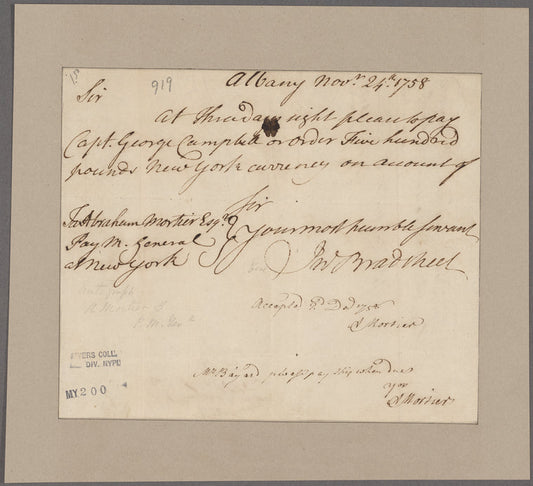 919
Albany Novr. 24th. 1758
Sir
At Three days sight please to pay
Capt. George Campbell or order Five hundred
pounds New York currency on account of
Sir
To Abraham Mortier Esqr.
Your most humble Servant
Pay M. General
at New York
Jno Bradstreet
Autograph
A Mortier
P. M. Gen
Accepted
A Mortier
MYERS COLL.
DIV. NYPL
MY 200
Mr. Bayard please pay this when due
A Mortier